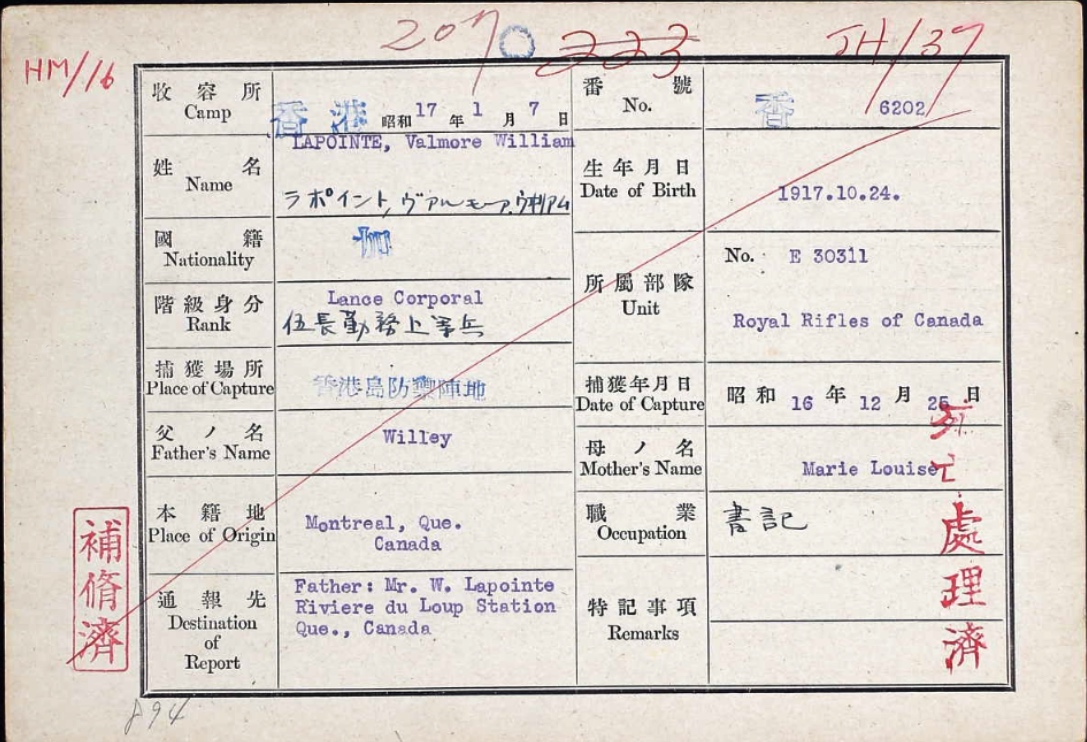 207
223
JH/37
HM/16
收容所
Camp
香港 昭和17年1月7日
番號
No.
香 6202
姓名
Name
LAPOINTE, Valmore William
ラポイント,ヴァルモーア.ウヰリアム
生年月日
Date of Birth
1917.10.24.
國籍
Nationality
加
階級身分
Rank
Lance Corporal
伍長勤務上等兵
所屬部隊
Unit
No. E 30311
Royal Rifles of Canada
捕獲場所
Place of Capture
香港島防禦陣地
捕獲年月日
Date of Capture
昭和16年12月25日
父ノ名
Father's Name
Willey
母ノ名
Mother's Name
Marie Louise
本籍地
Place of Origin
Montreal, Que.
Canada
職業
Occupation
書記
通報先
Destination
of
Report
Father: Mr. W. Lapointe
Riviere du Loup Station
Que., Canada
特記事項
Remarks
死亡處理濟
補脩濟
894